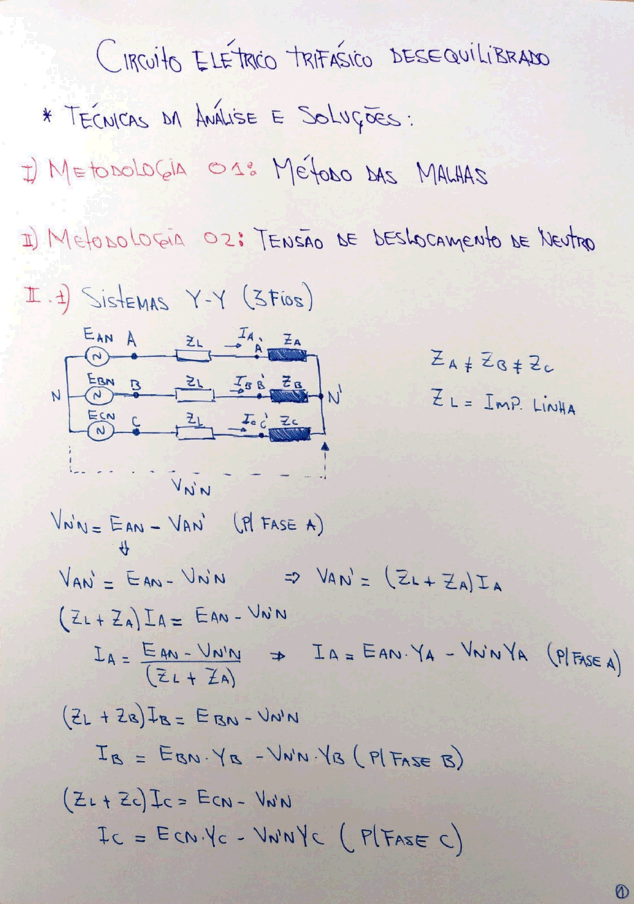 CIRCUITO ELÉTRICO TRIFÁSICO DESEQUILIBRADO
* TÉCNICAS DA ANÁLISE E SOLUÇÕES:
I) METODOLOGIA 01: MÉTODO DAS MALHAS
II) METODOLOGIA 02: TENSÃO DE DESLOCAMENTO DE NEUTRO
II.1) SISTEMAS Y-Y (3 FIOS)
EAN A ZL IA A' ZA
N EBN B ZL IB B' ZB N'
ECN C ZL IC C' ZC
VN'N
ZA ≠ ZB ≠ ZC
ZL = IMP. LINHA
VN'N = EAN - VAN' (P/ FASE A)
⇓
VAN' = EAN - VN'N ⇒ VAN' = (ZL + ZA) IA
(ZL + ZA) IA = EAN - VN'N
IA = EAN - VN'N / (ZL + ZA) ⇒ IA = EAN.YA - VN'N YA (P/ FASE A)
(ZL + ZB) IB = EBN - VN'N
IB = EBN.YB - VN'N.YB (P/ FASE B)
(ZL + ZC) IC = ECN - VN'N
IC = ECN.YC - VN'N YC (P/ FASE C)
1